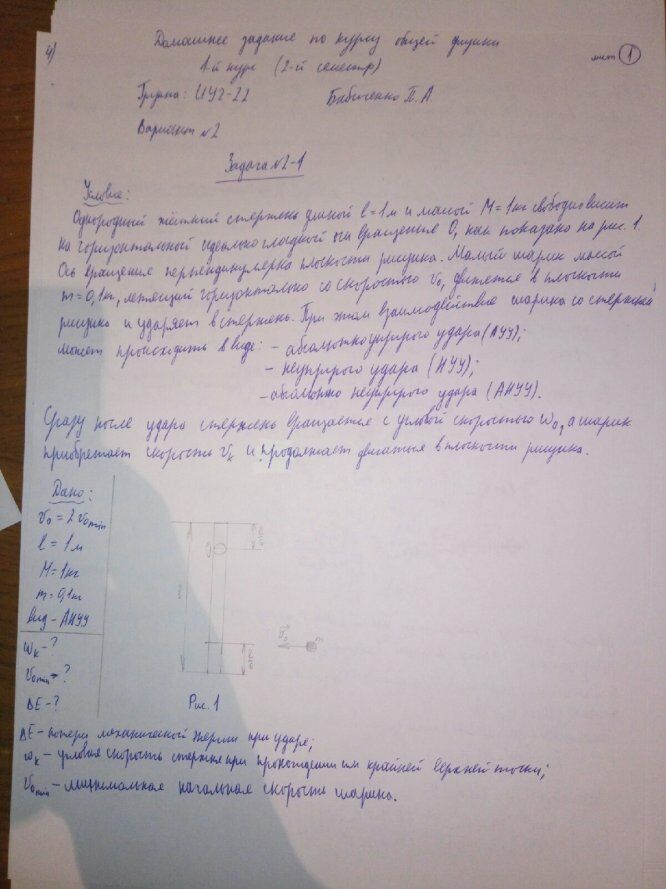 Домашнее задание по курсу общей физики
лист 1
1-й курс (2-й семестр)
Группа: ИУ2-22 Бабиченко П.А
Вариант №2
Задача №2-1
Условие:
Однородный жёсткий стержень длиной l=1м и массой M=1кг свободно висит
на горизонтальной идеально гладкой оси вращения O, как показано на рис. 1.
Ось вращения перпендикулярна плоскости рисунка. Малый шарик массой
m=0,1кг, летящий горизонтально со скоростью v₀, движется в плоскости
рисунка и ударяет в стержень. При этом взаимодействие шарика со стержнем
может происходить в виде: - абсолютно упругого удара (АУУ);
- неупругого удара (НУУ);
- абсолютно неупругого удара (АНУУ).
Сразу после удара стержень вращается с угловой скоростью ω₀, а шарик
приобретает скорость vₖ и продолжает двигаться в плоскости рисунка.
Дано:
v₀ = 2v₀min
l = 1м
M = 1кг
m = 0,1кг
вид - АНУУ
ωₖ - ?
v₀min - ?
ΔE - ?
v₀
Рис. 1
ΔE - потери механической энергии при ударе;
ωₖ - угловая скорость стержня при прохождении им крайней верхней точки;
v₀min - минимальная начальная скорость шарика.